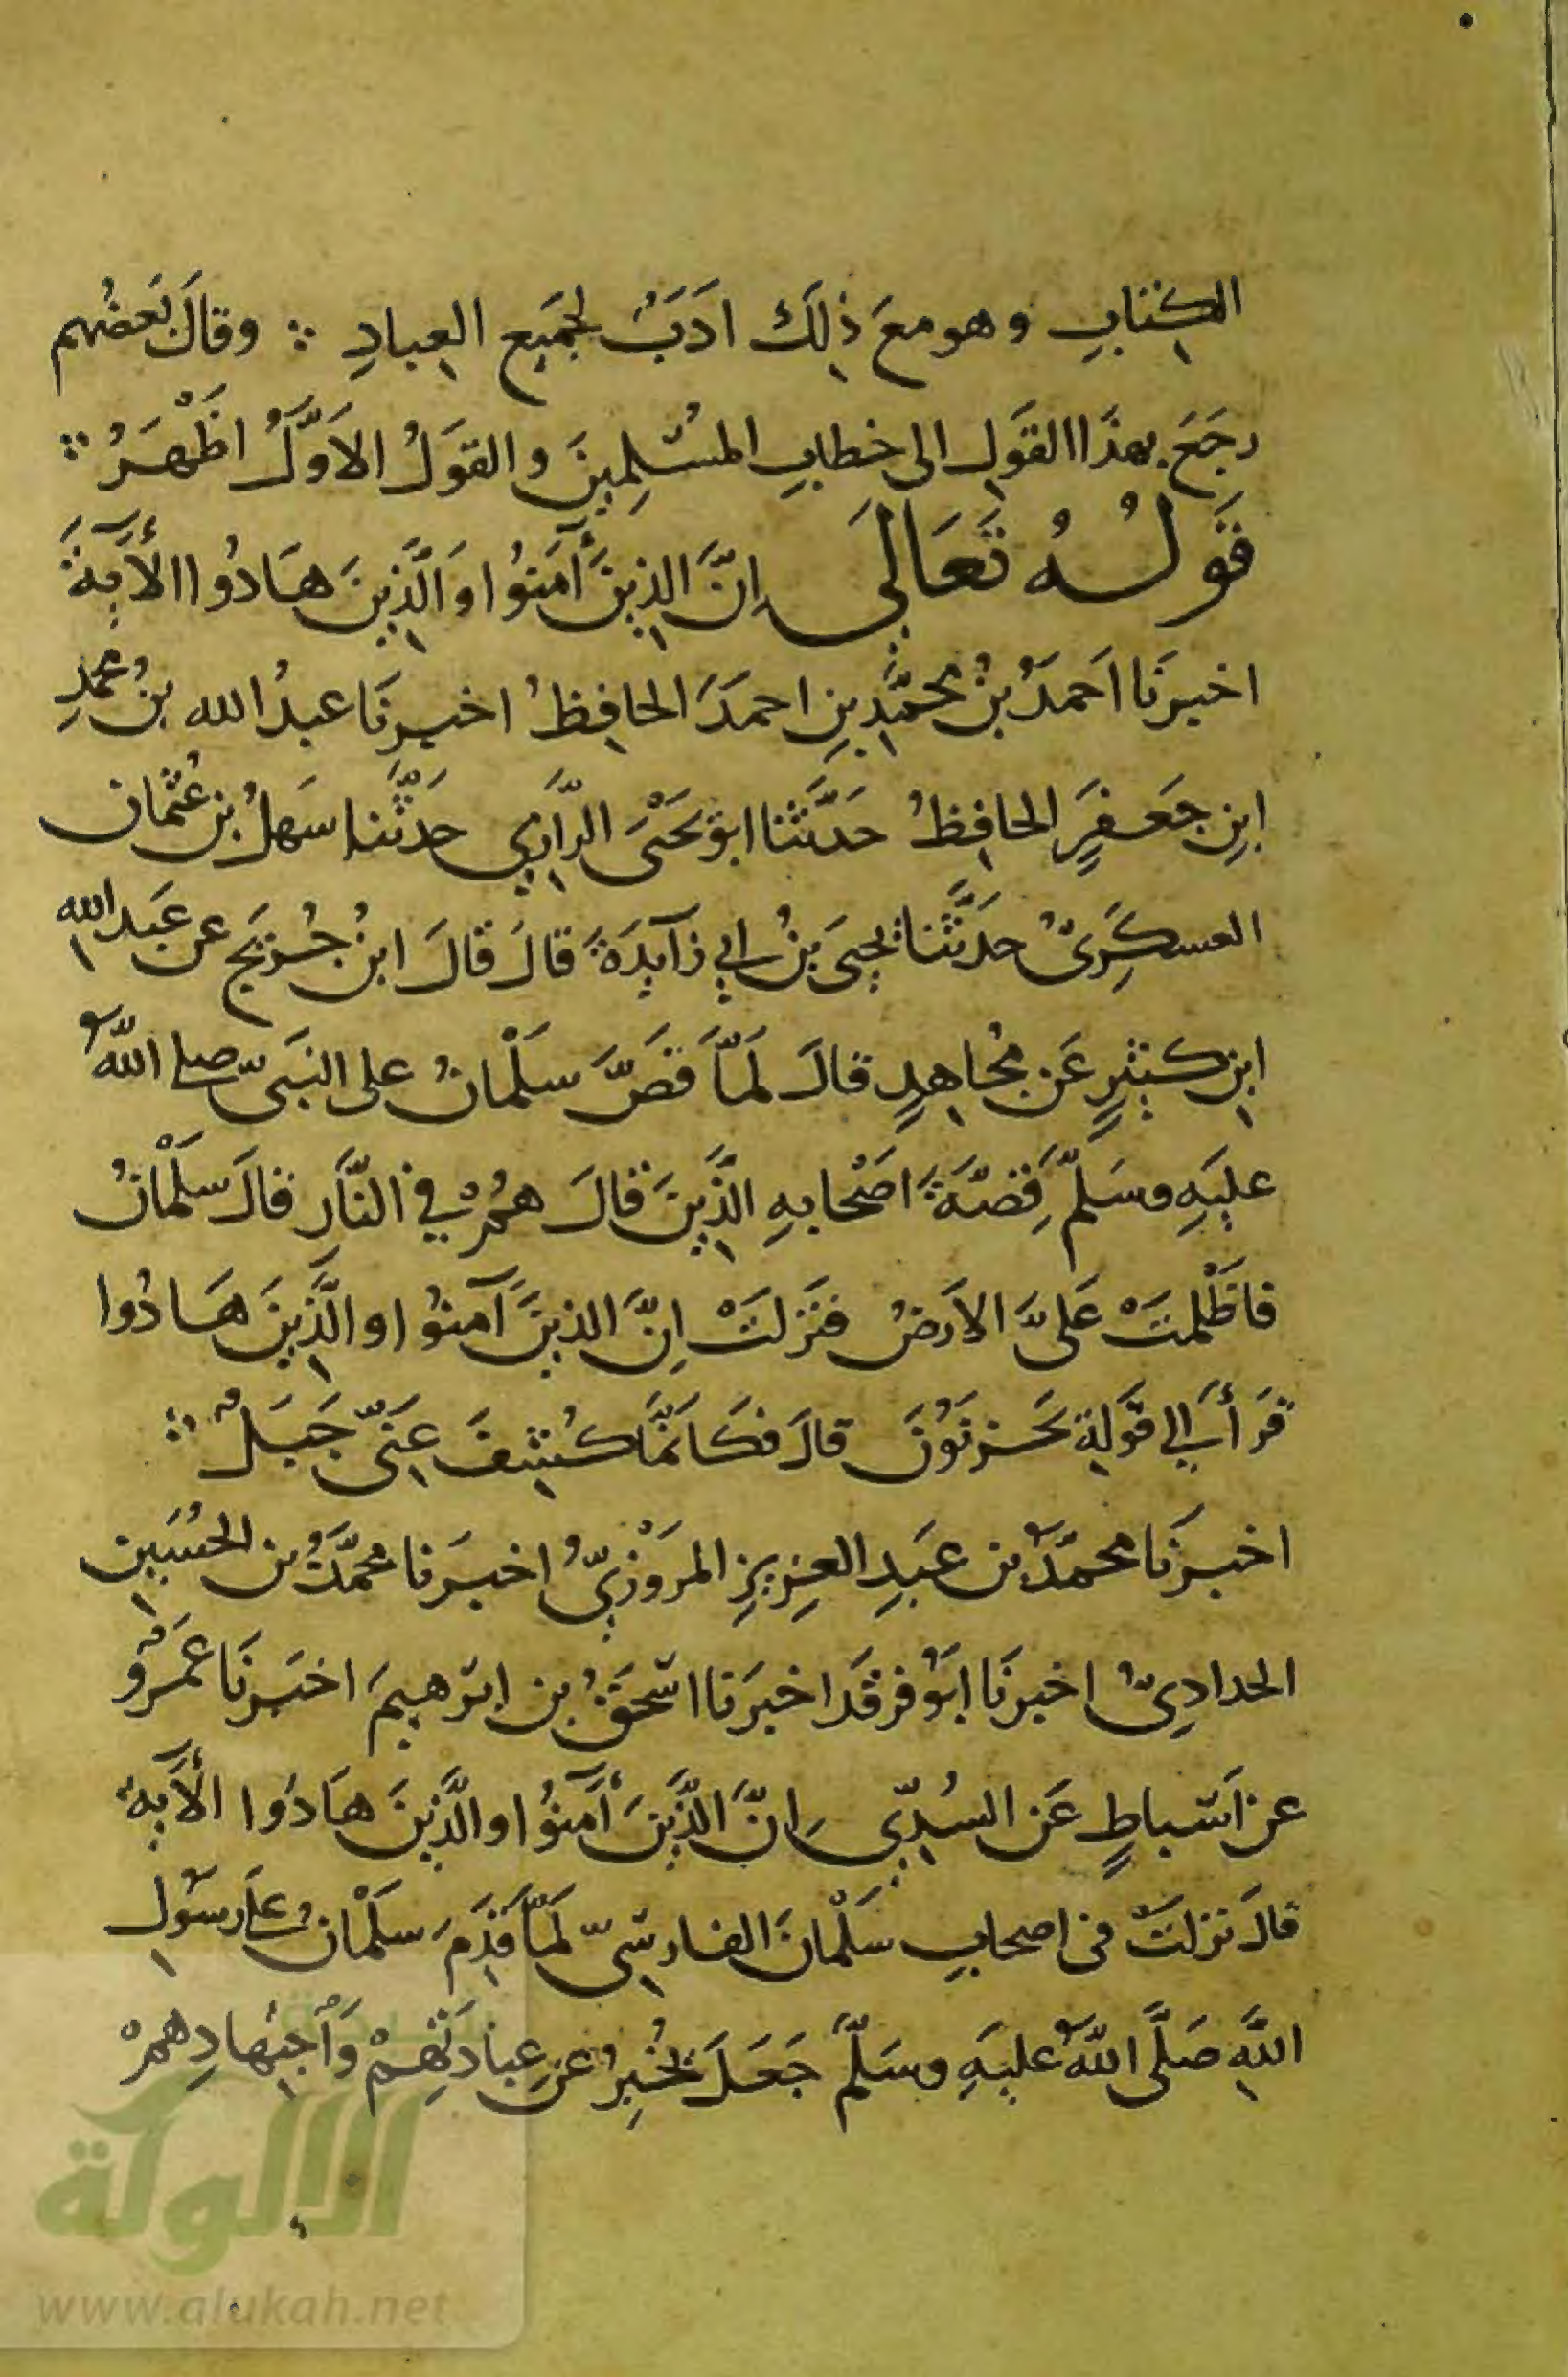 الكتابِ وهو معَ ذٰلِكَ ادَبٌ لجَميع العِبادِ ∴ وقالَ بَعضُهم
رجَعَ بهذَا القَولِ الى خطابِ المسُلِمِينَ والقَولُ الاَوَّلُ اظْهَرُ ∴
قَولُهُ تَعَالَى اِنَّ الذِينَ آمَنُوا وَالَّذِينَ هَادُوا الأَيةَ
اخبرَنَا احَمدُ بنُ محمَّدِ بنِ احمدَ الحافِظُ اخبرَنَا عبدُ الله بنُ محمدِ
ابنِ جَعفَرٍ الحافِظُ حَدثَّنَا ابوَ يَحْيَى الرَّازِي حَدثَّنا سَهلُ بنُ عُثمان
العسكَرِىُّ حدَّثَنا يحيَى بنُ ابي زآيدَةَ قالَ قالَ ابنُ جُرَيج عن عَبد الله
ابنِ كَثيرٍ عَن مجُاهِدٍ قالَ لَمَّا قَصَّ سَلْمانُ على النبَىّ صلى اللّهُ
عليَهِ وسَلّمَ قِصّةَ اصَحْابهِ الذَّينَ قالَ همُ في النَّارِ قالَ سَلْمانُ
فاظَلْمَتْ عَلىَّ الاَرضُ فنَزلَتْ اِنَّ الذينَ آمنوُا والَّذِينَ هَادُوا
قرَأَ اِلى قَولِهِ يَحزنَوُنَ قالَ فكَانَمَّا كُشِفَ عَنىّ جَبَلٌ ∴
اخبرَنَا محمَّدُ بن عَبدِ العزِيزِ المرَوْزِىُّ اخبرَنا محمَّدُ بن الحُسَينِ
الحدادِىُّ اخبرنَا ابَوُ فرقَد اخبرَنا اسْحقُ بن ابرَهيمَ اخبَرنَا عَمْرٌو
عن اَسْباطٍ عَن السُدِّي اِنَّ الذَّينَ آمَنُوا والَّذينَ هَادُوا الأَية
قالَ نزلَتْ فى اصحابِ سَلْمانَ الفارسِىّ لَمَّا قَدِمَ سَلْمانُ على رسَوُلِ
اللّهِ صَلَّى اللّهُ عليَهِ وسَلَّمَ جَعَلَ يُخبِرُ عَن عِبادَتِهِمْ وَاجتِهادِهمْ
الألوكة
www.alukah.net